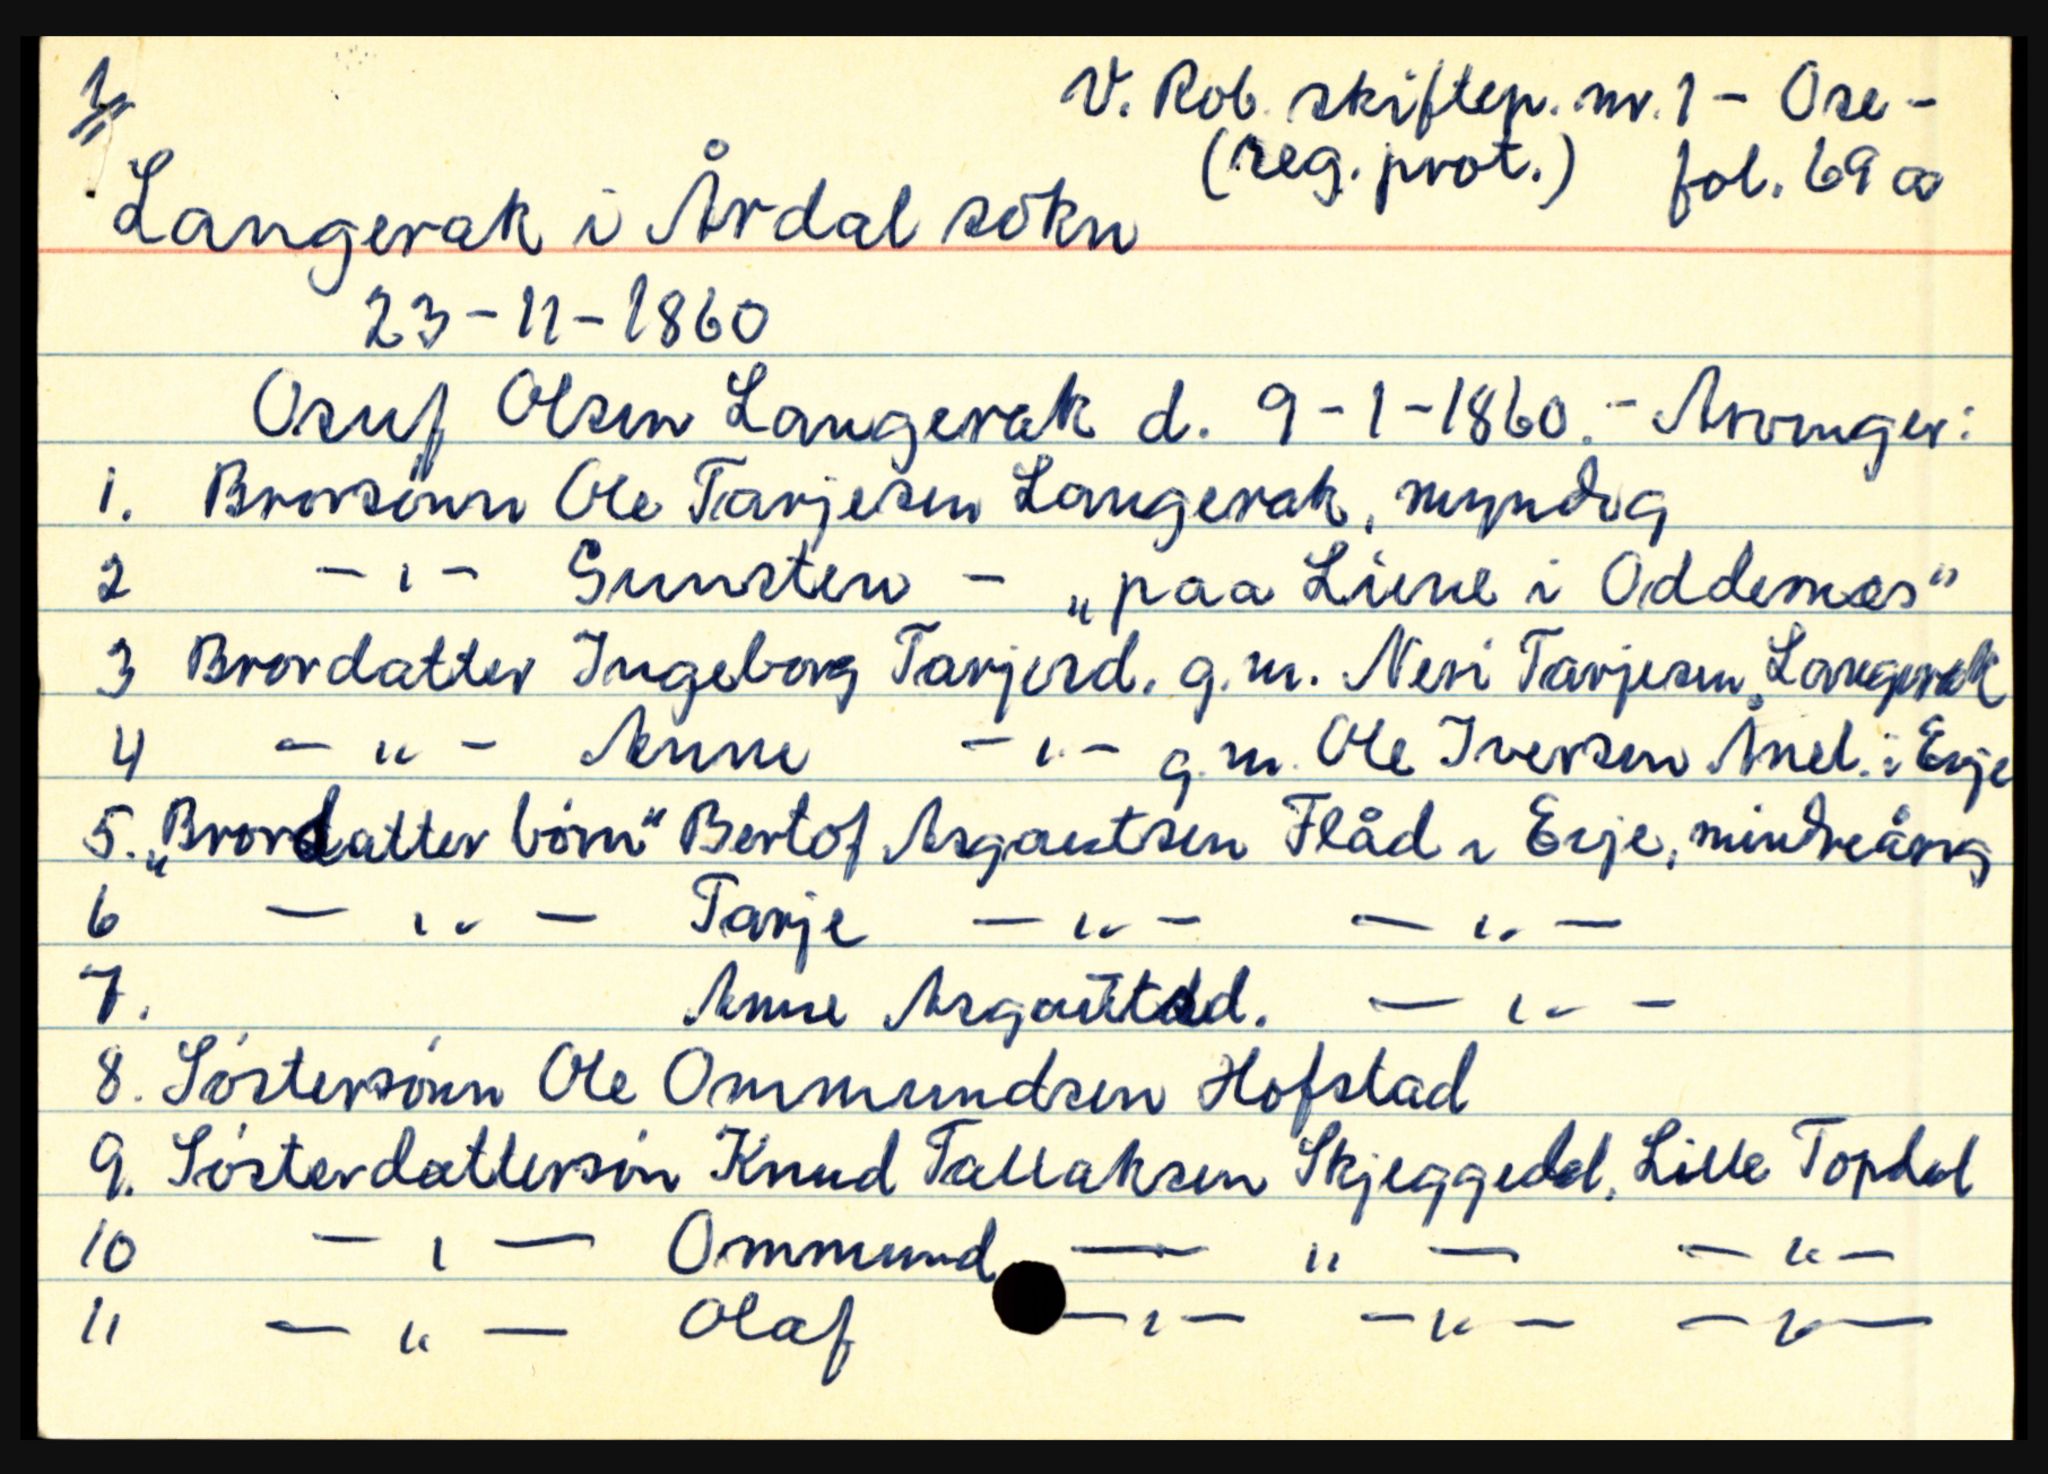 1/
V. Rob. skiftep. nr. 1 - Ose -
(reg. prot.) fol. 69 a
Langerak i Årdal sokn
23-11-1860
Osuf Olsen Langerak d. 9-1-1860. - Arvinger:
1. Brorsønn Ole Tarjesen Langerak, myndig
2 -"- Gunsten - "paa Liene i Oddernæs"
3 Brordatter Ingeborg Tarjesd. g.m. Neri Tarjesen Langerak
4 -"- Anne -"- g.m. Ole Iversen Ånel. i Evje
5. "Brordatter børn" Bertof Asgautsen Flåd i Evje, mindreårig
6 -"- Tarje -"- -"-
7. Anne Asgautsd. -"-
8. Søstersønn Ole Ommundsen Hofstad
9. Søsterdattersøn Knud Tallaksen Skjeggedal, Lille Topdal
10 -"- Ommund - " - -"-
11 -"- Olaf -"- -"- -"-